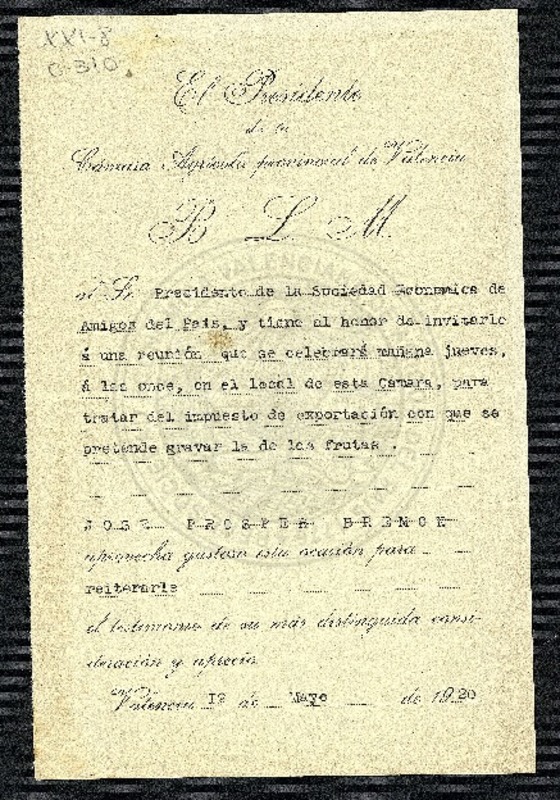 XXI-8
C-310
El Presidente
de la
Cámara Agrícola provincial de Valencia
B L M
al Sr. Presidente de la Sociedad Económica de
Amigos del Pais, y tiene el honor de invitarle
á una reunión que se celebrará mañana jueves,
á las once, en el local de esta Cámara, para
tratar del impuesto de exportación con que se
pretende gravar la de las frutas .
JOSE PROSPER BREMON
aprovecha gustoso esta ocasión para
reiterarle
el testimonio de su más distinguida consi-
deración y aprecio
Valencia 12 de Mayo de 1920